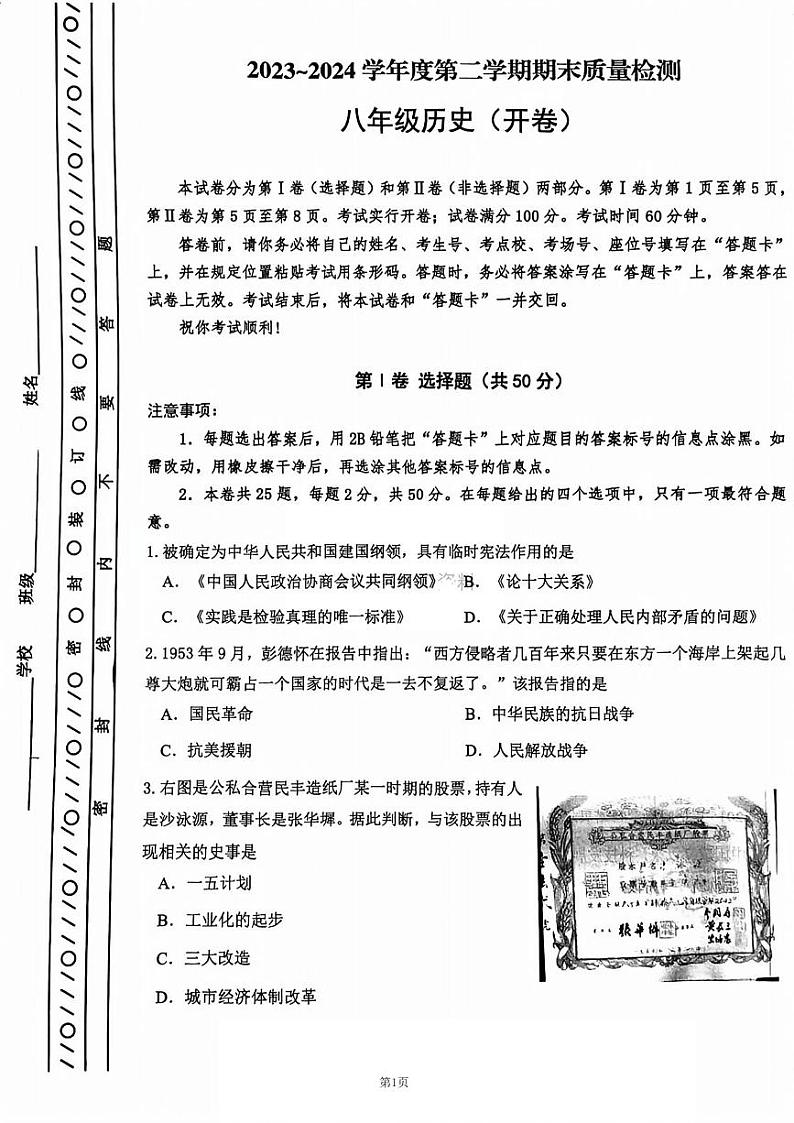 2023~2024 学年度第二学期期末质量检测
八年级历史（开卷）
本试卷分为第Ⅰ卷（选择题）和第Ⅱ卷（非选择题）两部分。第Ⅰ卷为第 1 页至第 5 页，
第Ⅱ卷为第 5 页至第 8 页。考试实行开卷；试卷满分 100 分。考试时间 60 分钟。
答卷前，请你务必将自己的姓名、考生号、考点校、考场号、座位号填写在“答题卡”
上，并在规定位置粘贴考试用条形码。答题时，务必将答案涂写在“答题卡”上，答案答在
试卷上无效。考试结束后，将本试卷和“答题卡”一并交回。
祝你考试顺利！
第Ⅰ卷 选择题（共 50 分）
注意事项：
1．每题选出答案后，用 2B 铅笔把“答题卡”上对应题目的答案标号的信息点涂黑。如
需改动，用橡皮擦干净后，再选涂其他答案标号的信息点。
2．本卷共 25 题，每题 2 分，共 50 分。在每题给出的四个选项中，只有一项最符合题
意。
1. 被确定为中华人民共和国建国纲领，具有临时宪法作用的是
A. 《中国人民政治协商会议共同纲领》 B. 《论十大关系》
C. 《实践是检验真理的唯一标准》 D. 《关于正确处理人民内部矛盾的问题》
2. 1953 年 9 月，彭德怀在报告中指出：“西方侵略者几百年来只要在东方一个海岸上架起几
尊大炮就可霸占一个国家的时代是一去不复返了。”该报告指的是
A. 国民革命 B. 中华民族的抗日战争
C. 抗美援朝 D. 人民解放战争
3. 右图是公私合营民丰造纸厂某一时期的股票，持有人
是沙泳源，董事长是张华墀。据此判断，与该股票的出
现相关的史事是
A. 一五计划
B. 工业化的起步
C. 三大改造
D. 城市经济体制改革
公私合营民丰造纸厂股票
張華墀
第1页
学校 班级 姓名
密 封 装 订 线
密 封 线 内 不 要 答 题